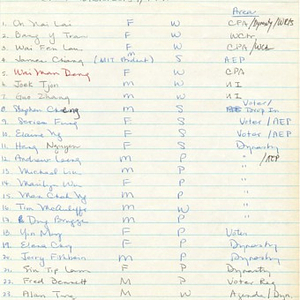 Area
1. Oh Nai Lai F W CPA/Dynasty/WRTS
2. Bang Y Tran F W WCtr
3. Wai Fan Lau F W CPA/WCtr
4. James Chiang (MIT Student) M S AEP
5. Wai Man Dong F W CPA
6. Jook Tjon M W NI
7. Guo Zhang M W NI
8. Stephen Cheong M S Voter/Drop In
9. Serena Fung F S Voter/AEP
10. Elaine Ng F S Voter/AEP
11. Hang Nguyen F S Dynasty
12. Andrew Leong M P " /AEP
13. Michael Liu M P "
14. Marilyn P "
15. Mae Chak Ng M P "
16. Tim McAuliffe M W "
17. Doy M P "
18. Yin May F P Voter
19. Elena F P Dynasty
20. Jerry Fishbein M P Dynasty
21. Siu Tip Lam F P Dynasty
22. Fred Bennett M P Voter Reg
23. Alan Ting M W Agenda/Dyn.